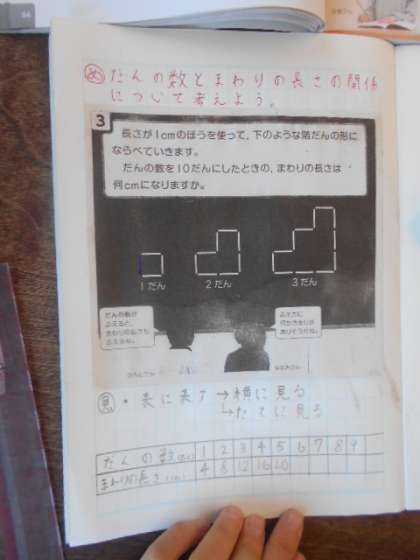 め だんの数とまわりの長さの関係
について考えよう。
3
長さが1cmのぼうを使って、下のような階だんの形に
ならべていきます。
だんの数を10だんにしたときの、まわりの長さは
何cmになりますか。
1だん 2だん 3だん
だんの数が
ふえると、
まわりの長さも
ふえるね。
ふえ方に
何かきまりが
ありそうだね。
見 ・表に表す→横に見る
→たてに見る
だんの数 1 2 3 4 5 6 7 8 9
まわりの長さ 4 8 12 16 20